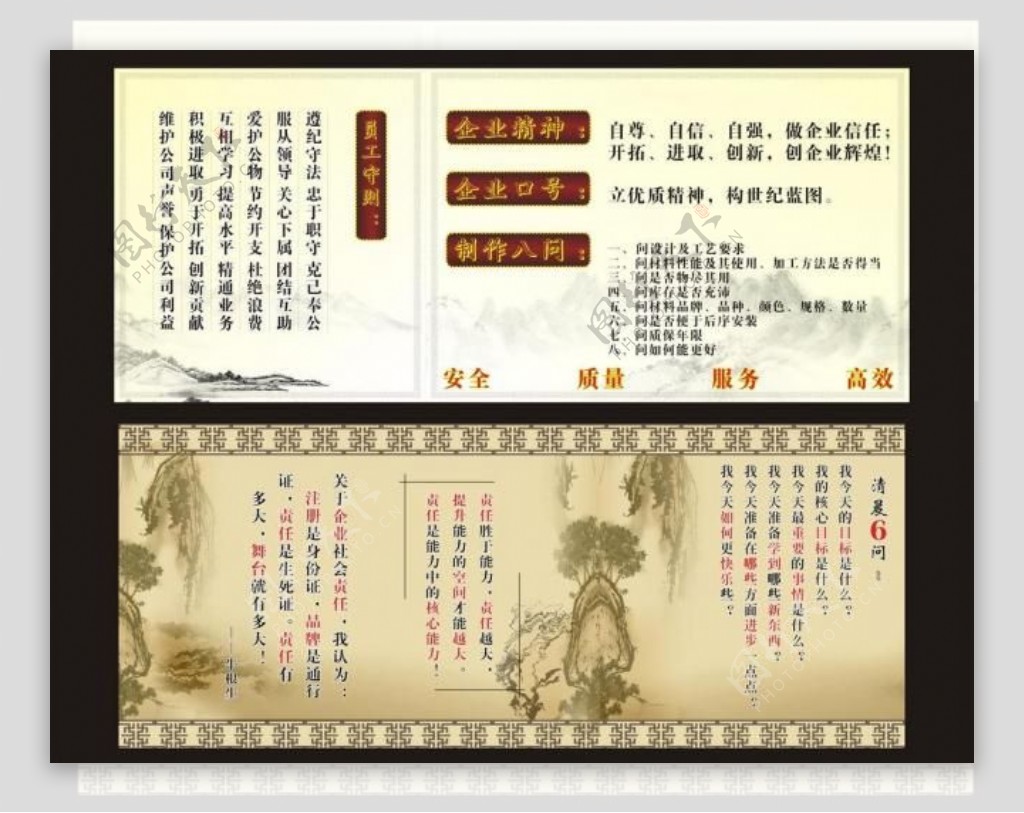 员工守则：
遵纪守法 忠于职守 克己奉公
服从领导 关心下属 团结互助
爱护公物 节约开支 杜绝浪费
互相学习 提高水平 精通业务
积极进取 勇于开拓 创新贡献
维护公司声誉 保护公司利益
企业精神：
自尊、自信、自强，做企业信任；
开拓、进取、创新，创企业辉煌！
企业口号：
立优质精神，构世纪蓝图。
制作八问：
一、问设计及工艺要求
二、问材料性能及其使用、加工方法是否得当
三、问是否物尽其用
四、问库存是否充沛
五、问材料品牌、品种、颜色、规格、数量
六、问是否便于后序安装
七、问质保年限
八、问如何能更好
安全 质量 服务 高效
清晨6问：
我今天的目标是什么？
我的核心目标是什么？
我今天最重要的事情是什么？
我今天准备学到哪些新东西？
我今天准备在哪些方面进步一点点？
我今天如何更快乐些？
责任胜于能力，责任越大，
提升能力的空间才能越大。
责任是能力中的核心能力！
关于企业社会责任，我认为：
注册是身份证，品牌是通行
证，责任是生死证。责任有
多大，舞台就有多大！
——牛根生